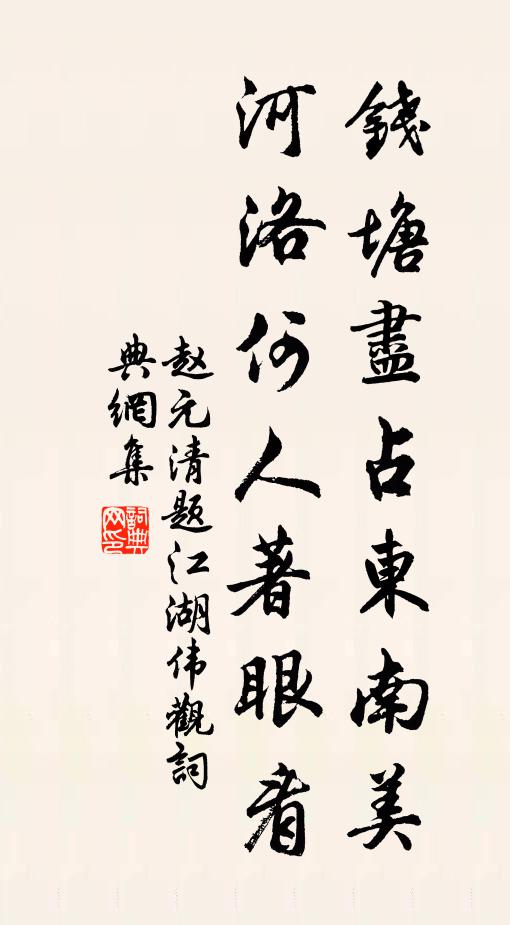 錢塘盡占東南美
河洛何人著眼看
赵元清题江湖伟觀詞
典網集
詞典网印